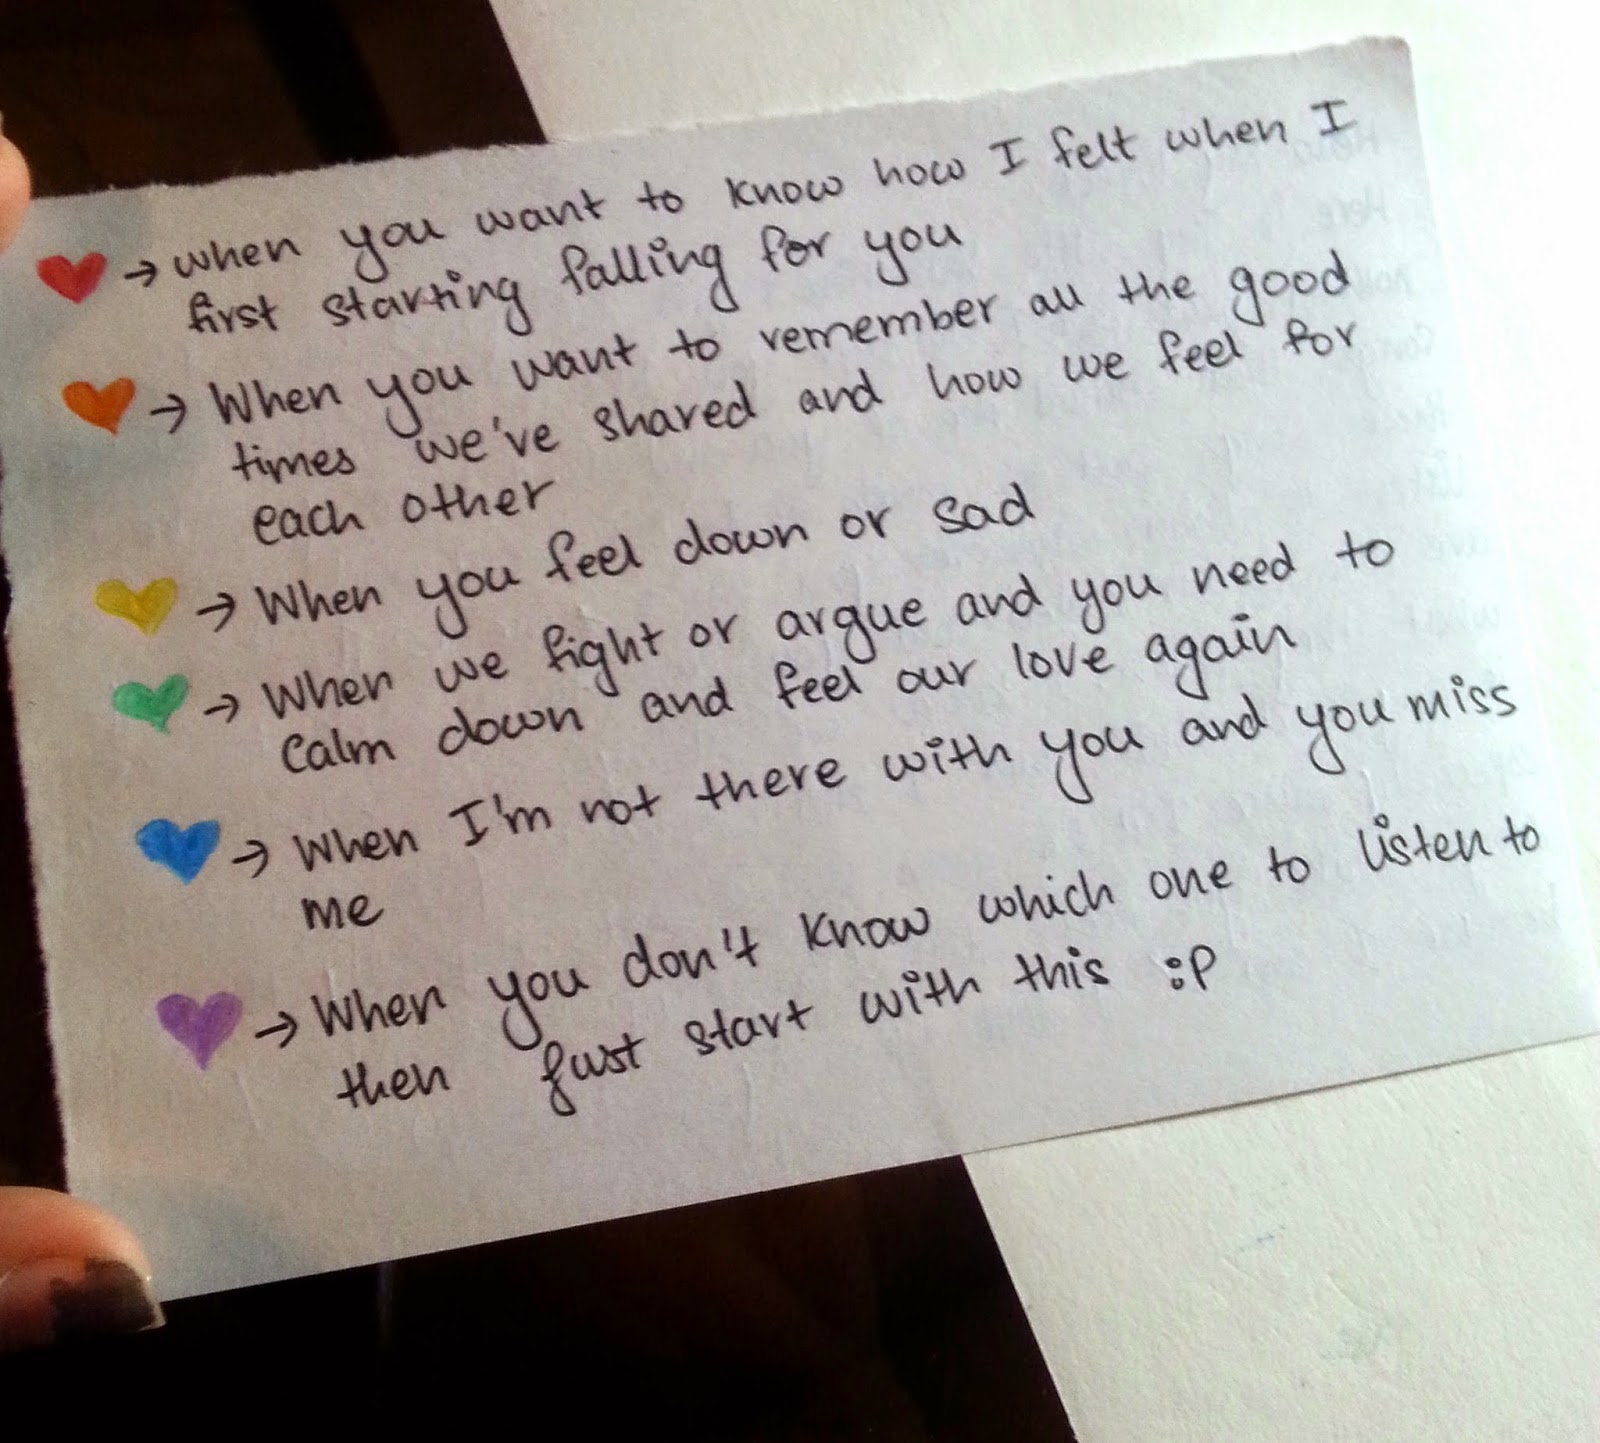 → when you want to know how I felt when I
first starting falling for you
→ When you want to remember all the good
times we've shared and how we feel for
each other
→ When you feel down or sad
→ When we fight or argue and you need to
calm down and feel our love again
→ When I'm not there with you and you miss
me
→ When you don't know which one to listen to
then just start with this :P